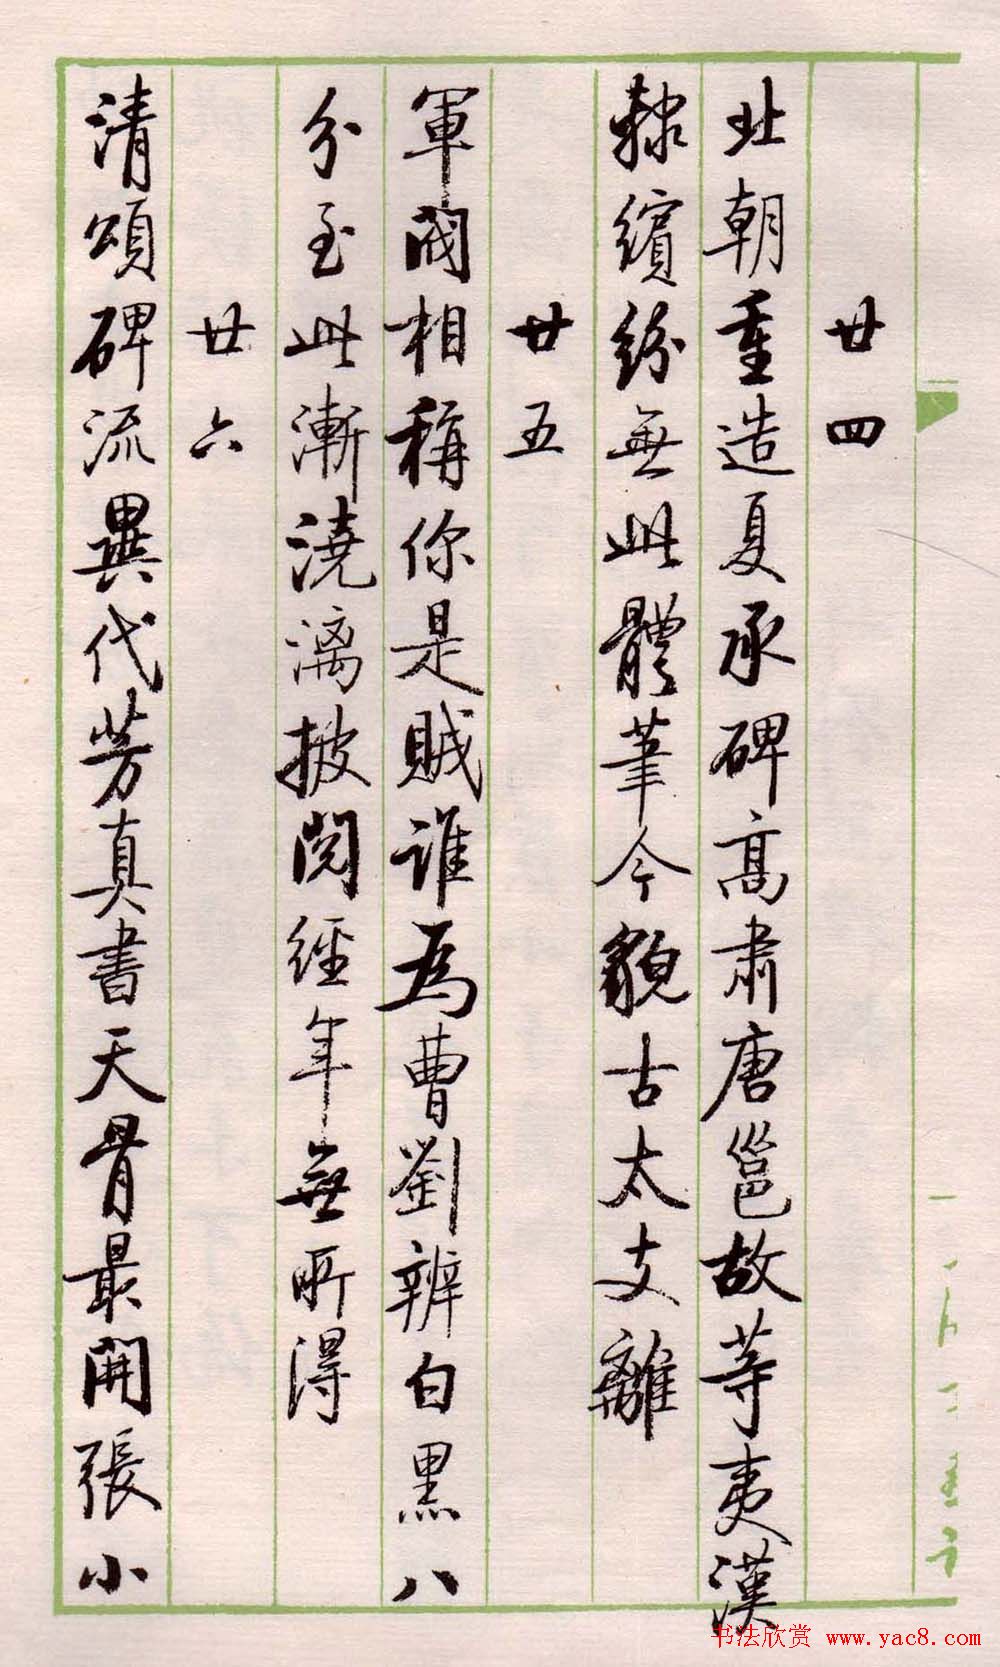 廿四
北朝重造夏承碑高肅唐邕故等夷漢
隸繽紛無此體筆今貌古太支離
廿五
軍閥相稱你是賊誰為曹劉辨白黑八
分至此漸澆漓披閱經年無所得
廿六
清頌碑流異代芳真書天骨最開張小
书法欣赏 www.yac8.com